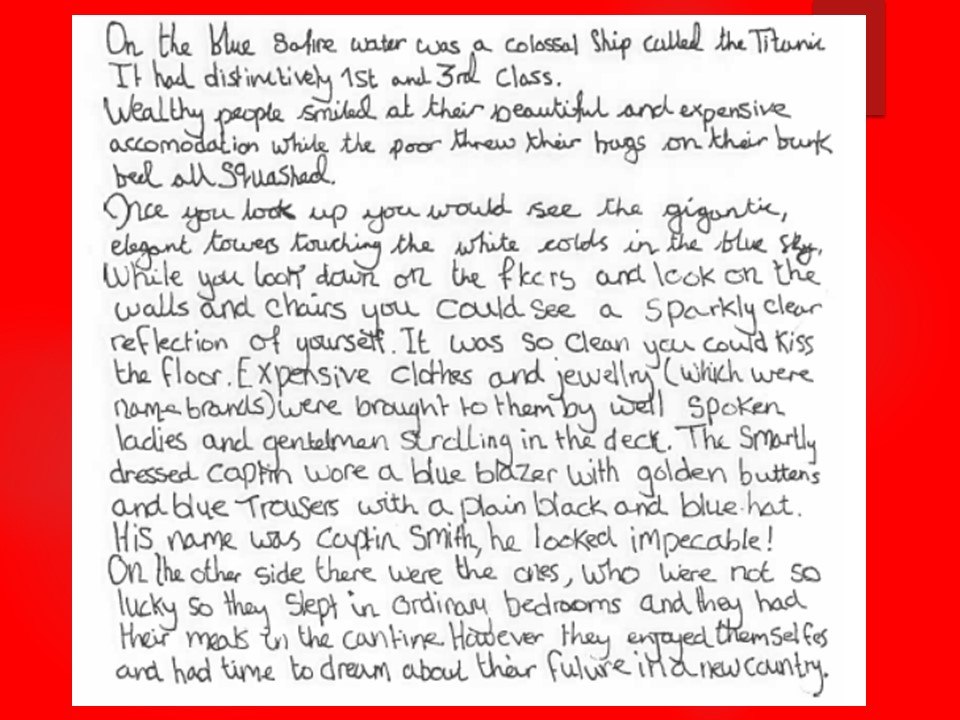 On the blue safire water was a colossal Ship called the Titanic
It had distinctively 1st and 3rd Class.
Wealthy people smiled at their beautiful and expensive
accomodation while the poor threw their bags on their bunk
bed all Squashed.
Once you look up you would see the gigantic,
elegant towers touching the white colds in the blue sky.
While you look down on the floors and look on the
walls and chairs you could see a sparkly clear
reflection of yourself. It was so clean you could kiss
the floor. Expensive clothes and jewellry (which were
name brands) were brought to them by well spoken
ladies and gentelmen strolling in the deck. The Smartly
dressed captin wore a blue blazer with golden buttens
and blue Trousers with a plain black and blue hat.
His name was Captin Smith, he looked impecable!
On the other side there were the ones, who were not so
lucky so they slept in ordinary bedrooms and they had
their meals in the cantine. However they enjoyed themselfes
and had time to dream about their future in a new country.